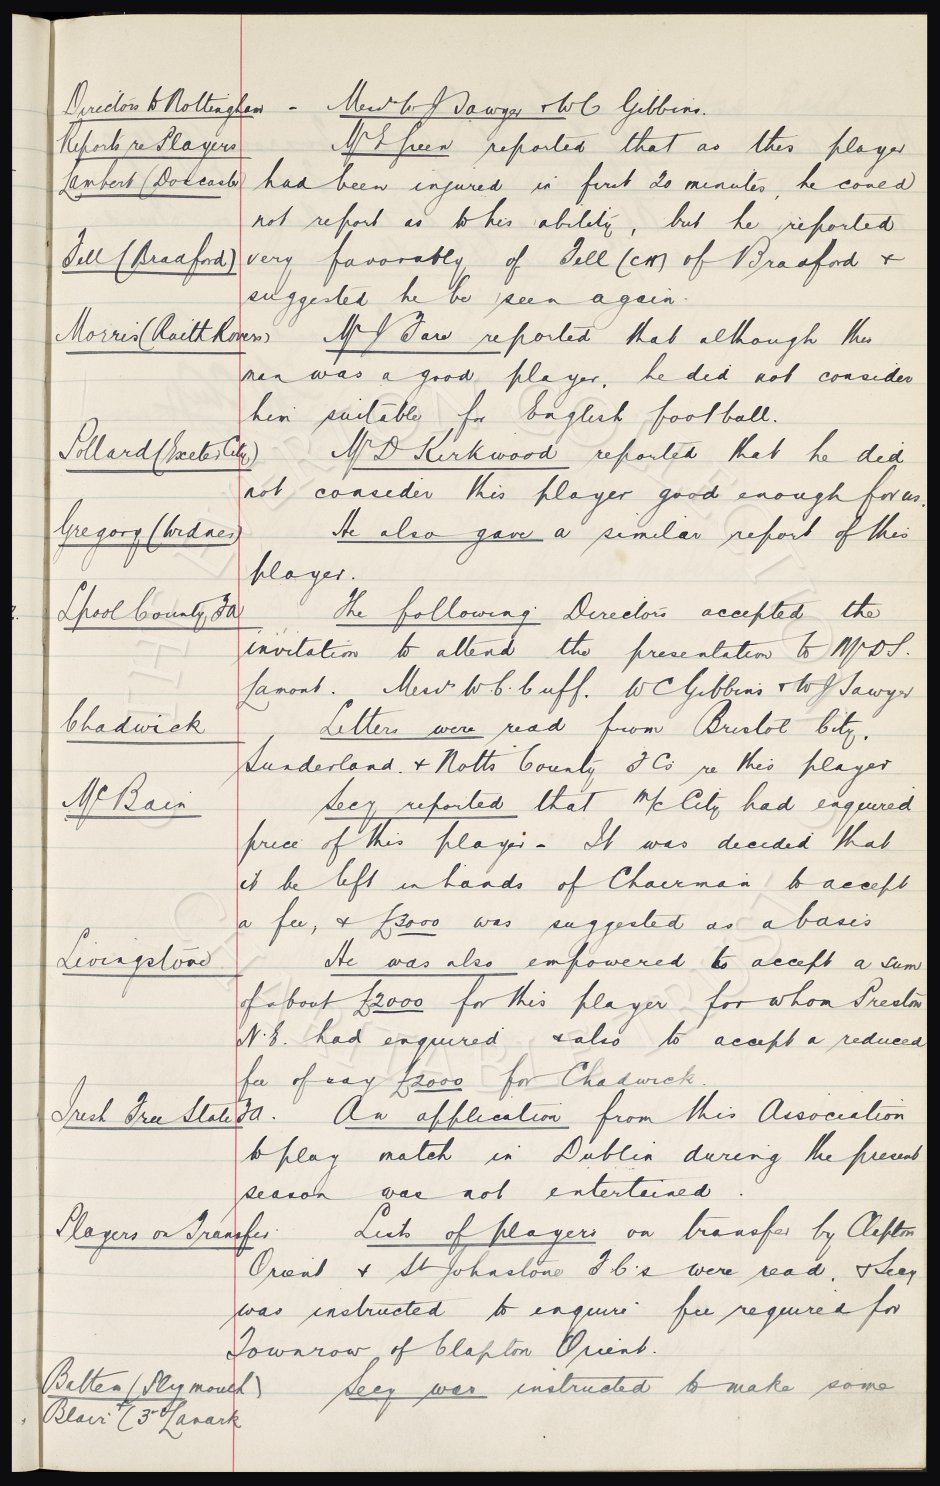 Directors to Nottingham - Messrs W J Sawyer & W C Gibbins.
Reports re Players Mr E Green reported that as this player
Lambert (Doncaster) had been injured in first 20 minutes, he could
not report as to his ability, but he reported
Fell (Bradford) very favorably of Fell (CH) of Bradford &
suggested he be seen again.
Morris (Raith Rovers) Mr J Fare reported that although this
man was a good player, he did not consider
him suitable for English football.
Pollard (Exeter City) Mr D Kirkwood reported that he did
not consider this player good enough for us.
Gregory (Widnes) He also gave a similar report of this
player.
Lpool County FA The following Directors accepted the
invitation to attend the presentation to Mr D S.
Lamont. Messrs W. C. Cuff. W C Gibbins & W J Sawyer
Chadwick Letters were read from Bristol City,
Sunderland. & Notts County F Cs re this player
McBain Secy reported that M/c City had enquired
price of this player - It was decided that
it be left in hands of Chairman to accept
a fee, & £3000 was suggested as a basis
Livingstone He was also empowered to accept a sum
of about £2000 for this player for whom Preston
N.E. had enquired & also to accept a reduced
fee of say £2000 for Chadwick.
Irish Free State FA. An application from this Association
to play match in Dublin during the present
season was not entertained.
Players on Transfer Lists of players on transfer by Clapton
Orient & St Johnstone F.C.s were read, & Secy
was instructed to enquire fee required for
Townrow of Clapton Orient.
Batten (Plymouth) Secy was instructed to make some
Blair (3rd Lanark